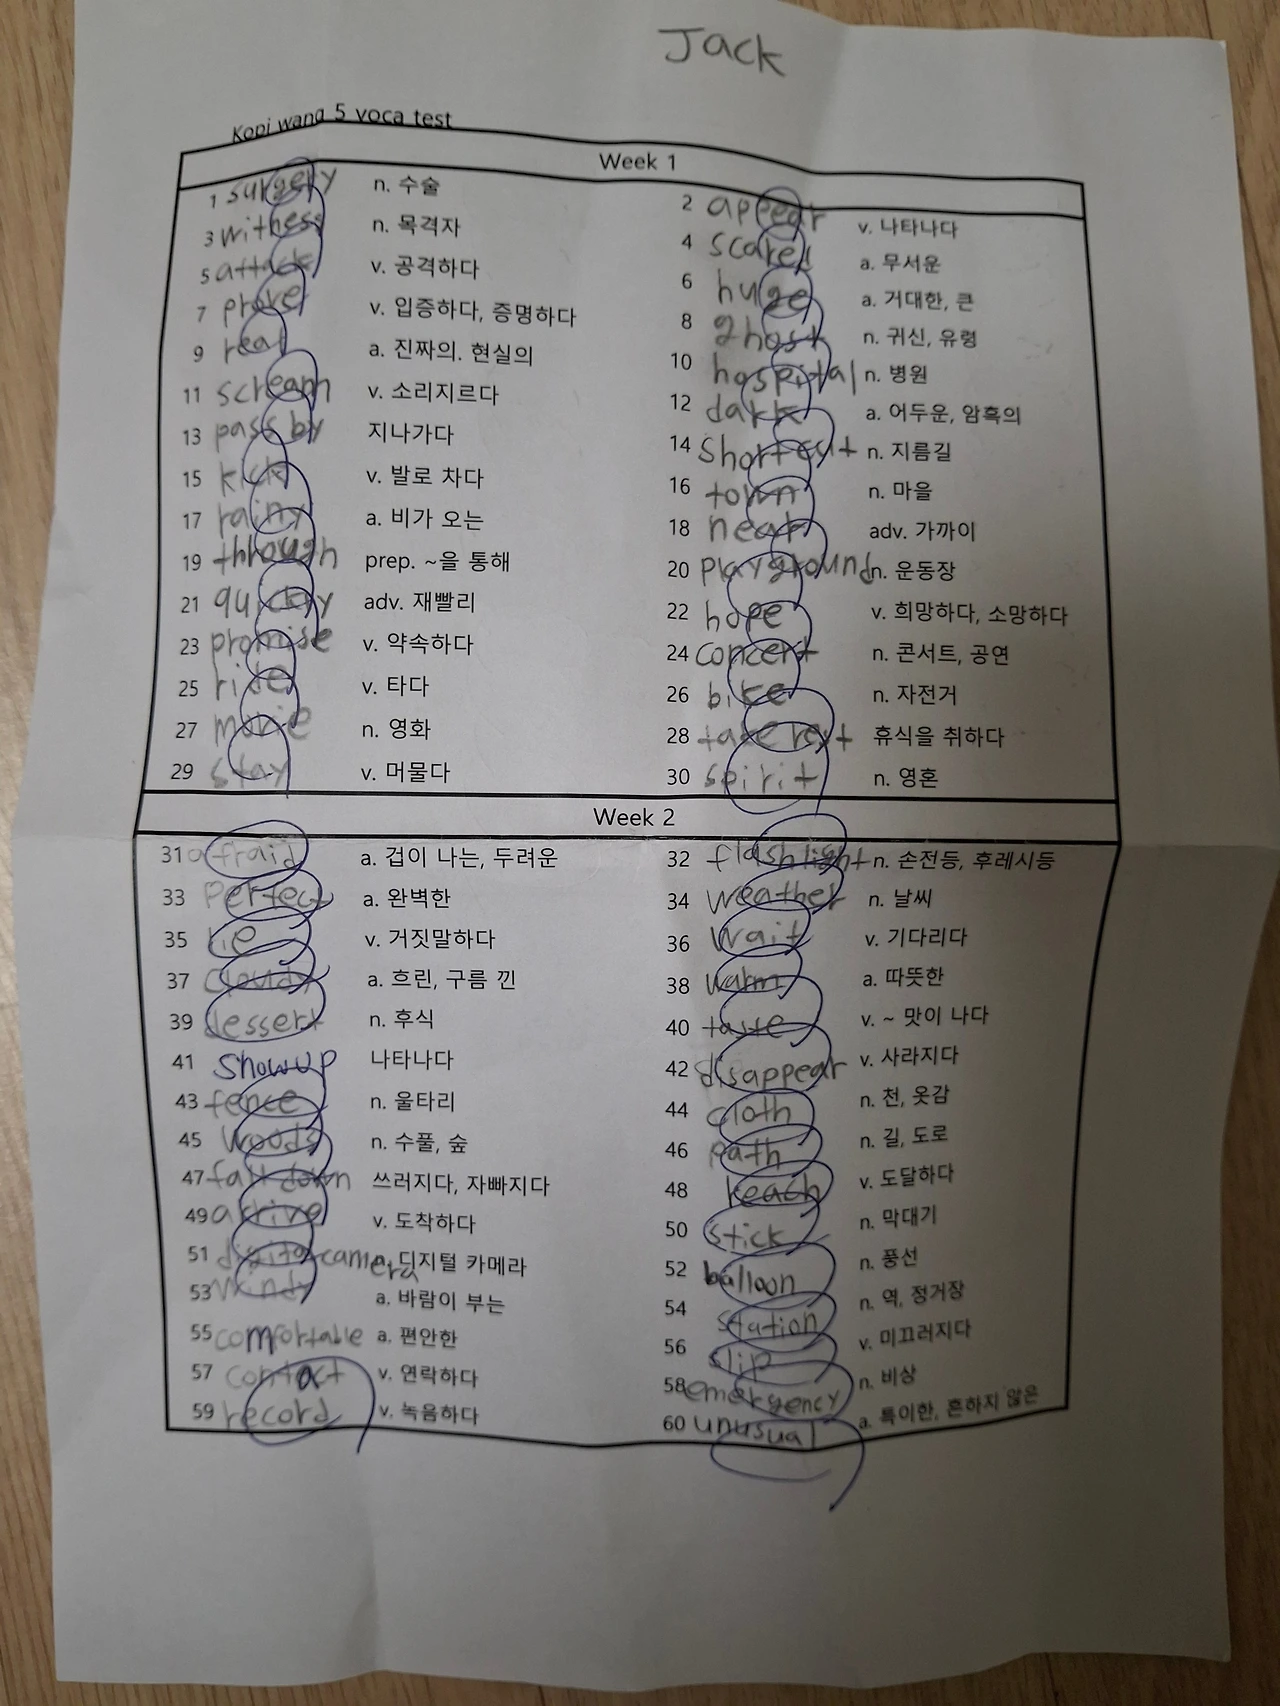 Jack
Kopi wang 5 voca test
Week 1
1 surgery n. 수술 2 appear v. 나타나다
3 witness n. 목격자 4 scared a. 무서운
5 attack v. 공격하다 6 huge a. 거대한, 큰
7 prove v. 입증하다, 증명하다 8 ghost n. 귀신, 유령
9 real a. 진짜의. 현실의 10 hospital n. 병원
11 scream v. 소리지르다 12 dark a. 어두운, 암흑의
13 pass by 지나가다 14 shortcut n. 지름길
15 kick v. 발로 차다 16 town n. 마을
17 rainy a. 비가 오는 18 near adv. 가까이
19 through prep. ~을 통해 20 playground n. 운동장
21 quickly adv. 재빨리 22 hope v. 희망하다, 소망하다
23 promise v. 약속하다 24 concert n. 콘서트, 공연
25 ride v. 타다 26 bike n. 자전거
27 movie n. 영화 28 take rest 휴식을 취하다
29 stay v. 머물다 30 spirit n. 영혼
Week 2
31 afraid a. 겁이 나는, 두려운 32 flashlight n. 손전등, 후레시등
33 perfect a. 완벽한 34 weather n. 날씨
35 lie v. 거짓말하다 36 wait v. 기다리다
37 cloudy a. 흐린, 구름 낀 38 warm a. 따뜻한
39 dessert n. 후식 40 taste v. ~ 맛이 나다
41 show up 나타나다 42 disappear v. 사라지다
43 fence n. 울타리 44 cloth n. 천, 옷감
45 woods n. 수풀, 숲 46 path n. 길, 도로
47 fall down 쓰러지다, 자빠지다 48 reach v. 도달하다
49 arrive v. 도착하다 50 stick n. 막대기
51 digital camera 디지털 카메라 52 balloon n. 풍선
53 windy a. 바람이 부는 54 station n. 역, 정거장
55 comfortable a. 편안한 56 slip v. 미끄러지다
57 contact v. 연락하다 58 emergency n. 비상
59 record v. 녹음하다 60 unusual a. 특이한, 흔하지 않은